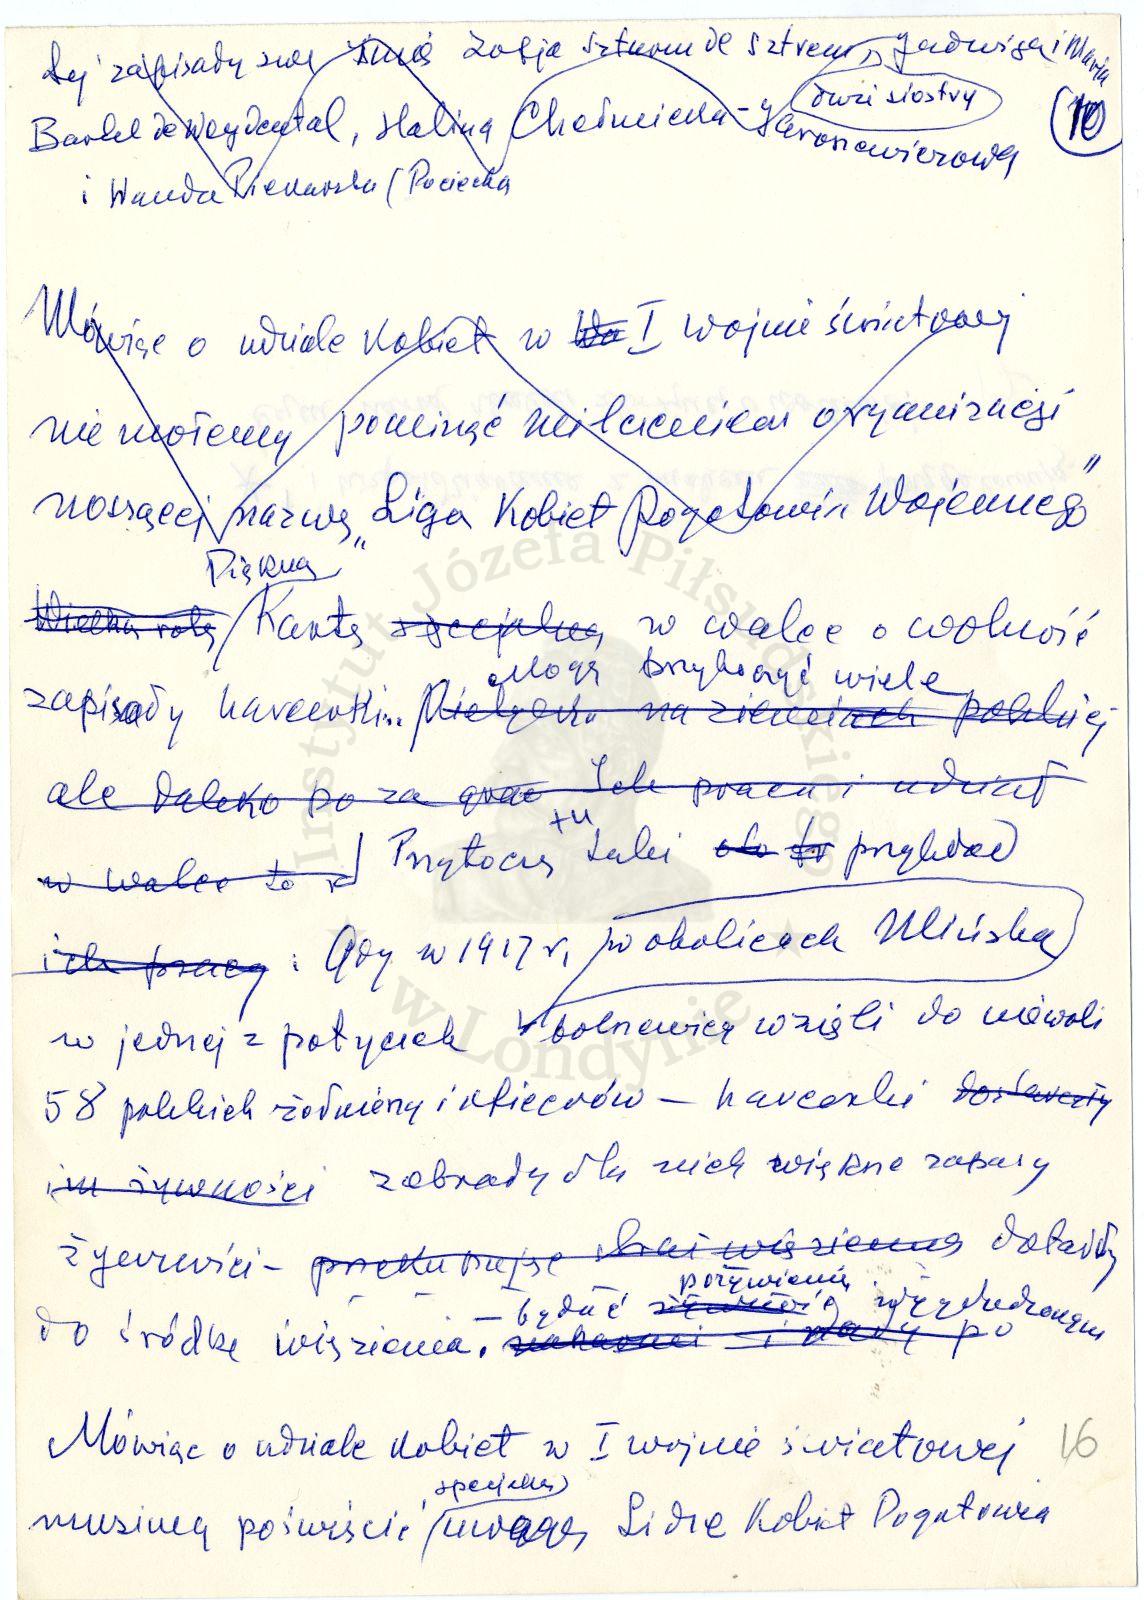 zapisały swą Zofja Szturm de Sztrem, Jadwiga i Maria
dwie siostry
10
Bartel de Weydental, Halina Chełmicka-Jaroszewiczowa
i Wanda Piekarska (Pociecha
Mówiąc o udziale kobiet w I wojnie światowej
nie możemy pominąć milczeniem organizacji
noszącej nazwę „Liga Kobiet Pogotowia Wojennego"
Piękną
Wielką rolę Kartę specjalną w walce o wolność
Mogę przytoczyć wiele
zapisały harcerki. na ziemiach polskiej
ale daleko po za Ich praca i udział
w walce to
Przytoczę tu taki przykład
ich pracy. Gdy w 1917 r, w okolicach Mińska
w jednej z potyczek bolszewicy wzięli do niewoli
58 polskich żołnierzy i oficerów – harcerki dostarczały
im żywności zebrały dla nich większe zapasy
żywności – przekupując straż więzienną dotarły
pożywienie
do środka więzienia. – będąc wygłodzonym
po
Mówiąc o udziale kobiet w I wojnie światowej
16
specjalną
musimy poświęcić uwagę Lidze Kobiet Pogotowia
Instytut Józefa Piłsudskiego
w Londynie